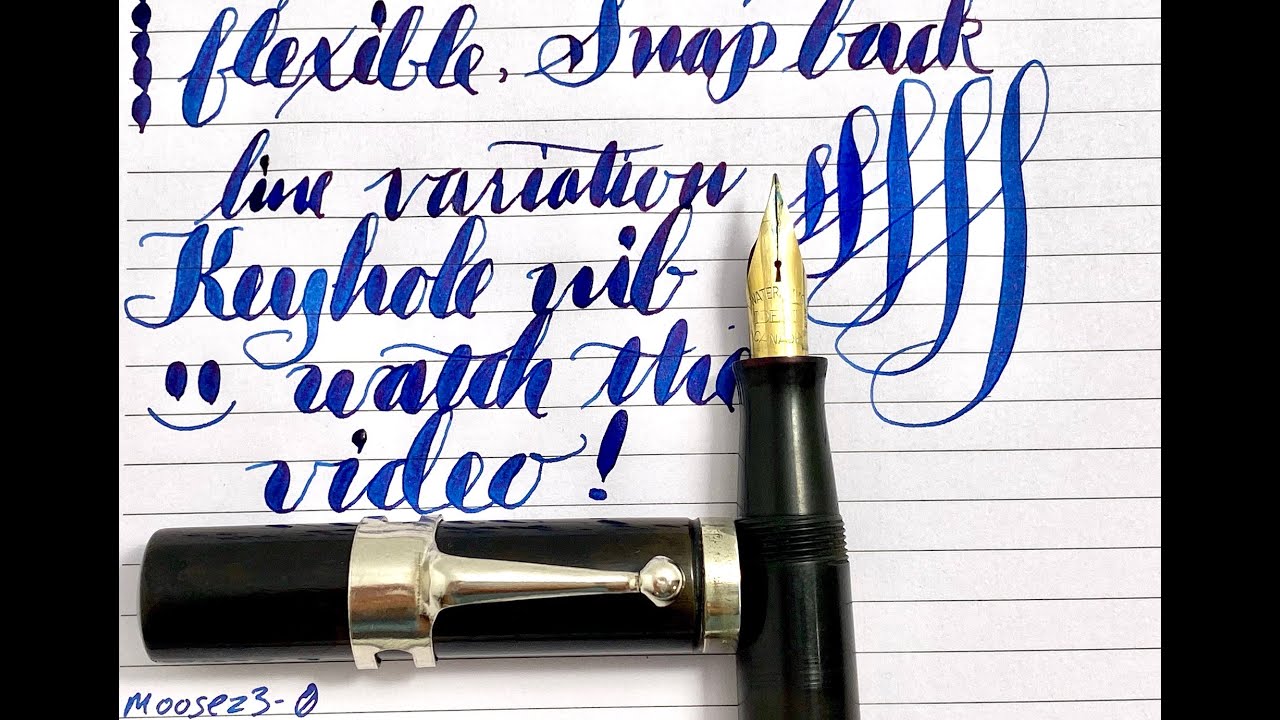 flexible. Snap back
line variation
Keyhole nib
watch this
video!
WATER
IDEAL
CANA
Moosez3-0